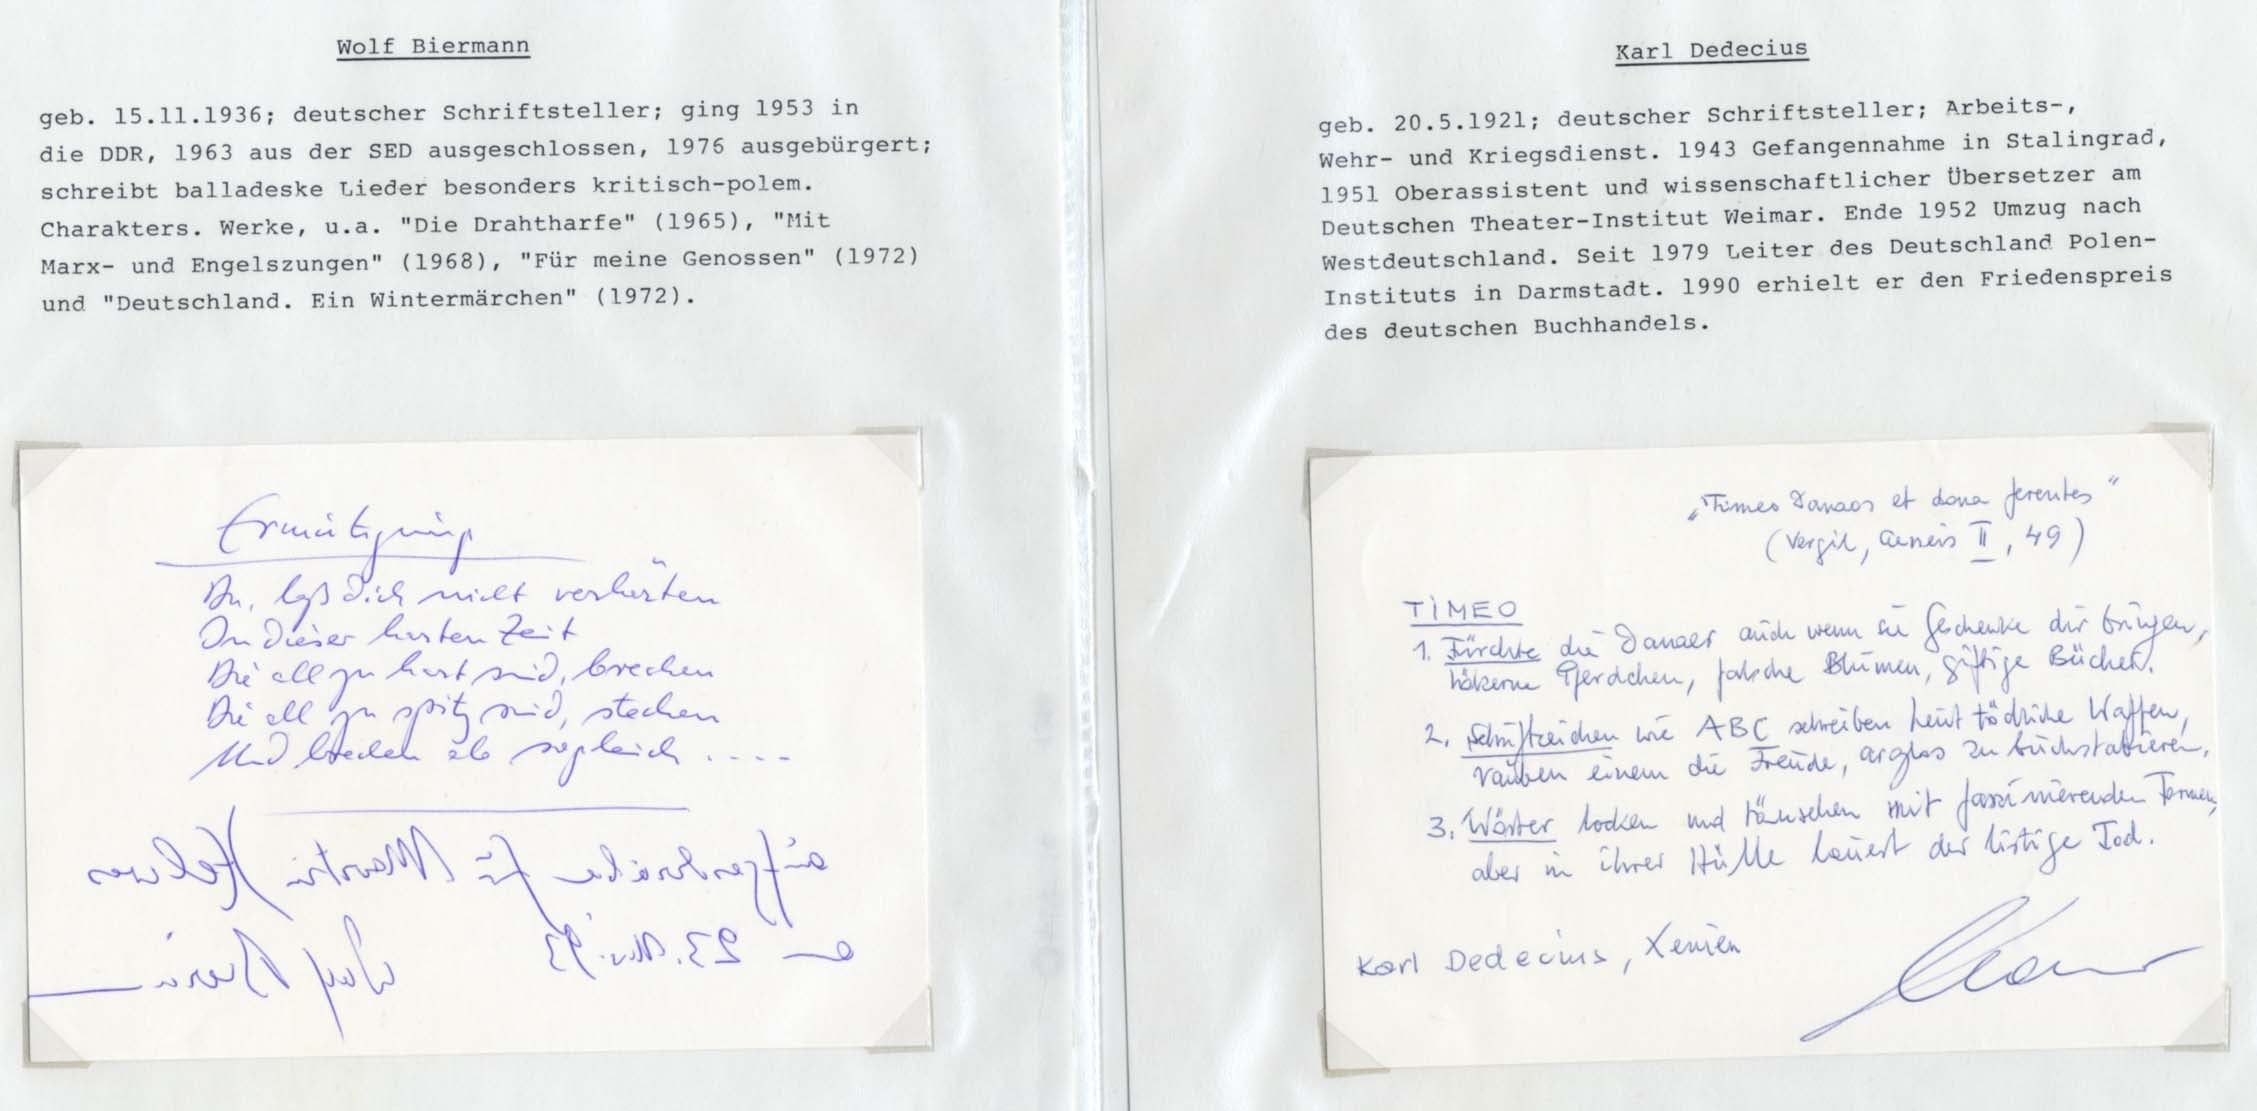 Wolf Biermann
geb. 15.11.1936; deutscher Schriftsteller; ging 1953 in
die DDR, 1963 aus der SED ausgeschlossen, 1976 ausgebürgert;
schreibt balladeske Lieder besonders kritisch-polem.
Charakters. Werke, u.a. "Die Drahtharfe" (1965), "Mit
Marx- und Engelszungen" (1968), "Für meine Genossen" (1972)
und "Deutschland. Ein Wintermärchen" (1972).
Ermutigung
Du, laß Dich nicht verhärten
In dieser harten Zeit
Die all zu hart sind, brechen
Die all zu spitz sind, stechen
Und brechen ab sogleich ....
aufgeschrieben für Martin
23. 93
Wolf Biermann
Karl Dedecius
geb. 20.5.1921; deutscher Schriftsteller; Arbeits-,
Wehr- und Kriegsdienst. 1943 Gefangennahme in Stalingrad,
1951 Oberassistent und wissenschaftlicher Übersetzer am
Deutschen Theater-Institut Weimar. Ende 1952 Umzug nach
Westdeutschland. Seit 1979 Leiter des Deutschland Polen-
Instituts in Darmstadt. 1990 erhielt er den Friedenspreis
des deutschen Buchhandels.
„Timeo Danaos et dona ferentes"
(Vergil, Aeneis II, 49)
TIMEO
1. Fürchte die Danaer auch wenn sie Geschenke dir bringen,
hölzerne Pferdchen, falsche Blumen, giftige Bücher.
2. Schriftzeichen wie ABC schreiben heut tödliche Waffen,
rauben einem die Freude, arglos zu buchstabieren.
3. Wörter locken und täuschen mit faszinierenden Formen,
aber in ihrer Hülle lauert der listige Tod.
Karl Dedecius, Xenien